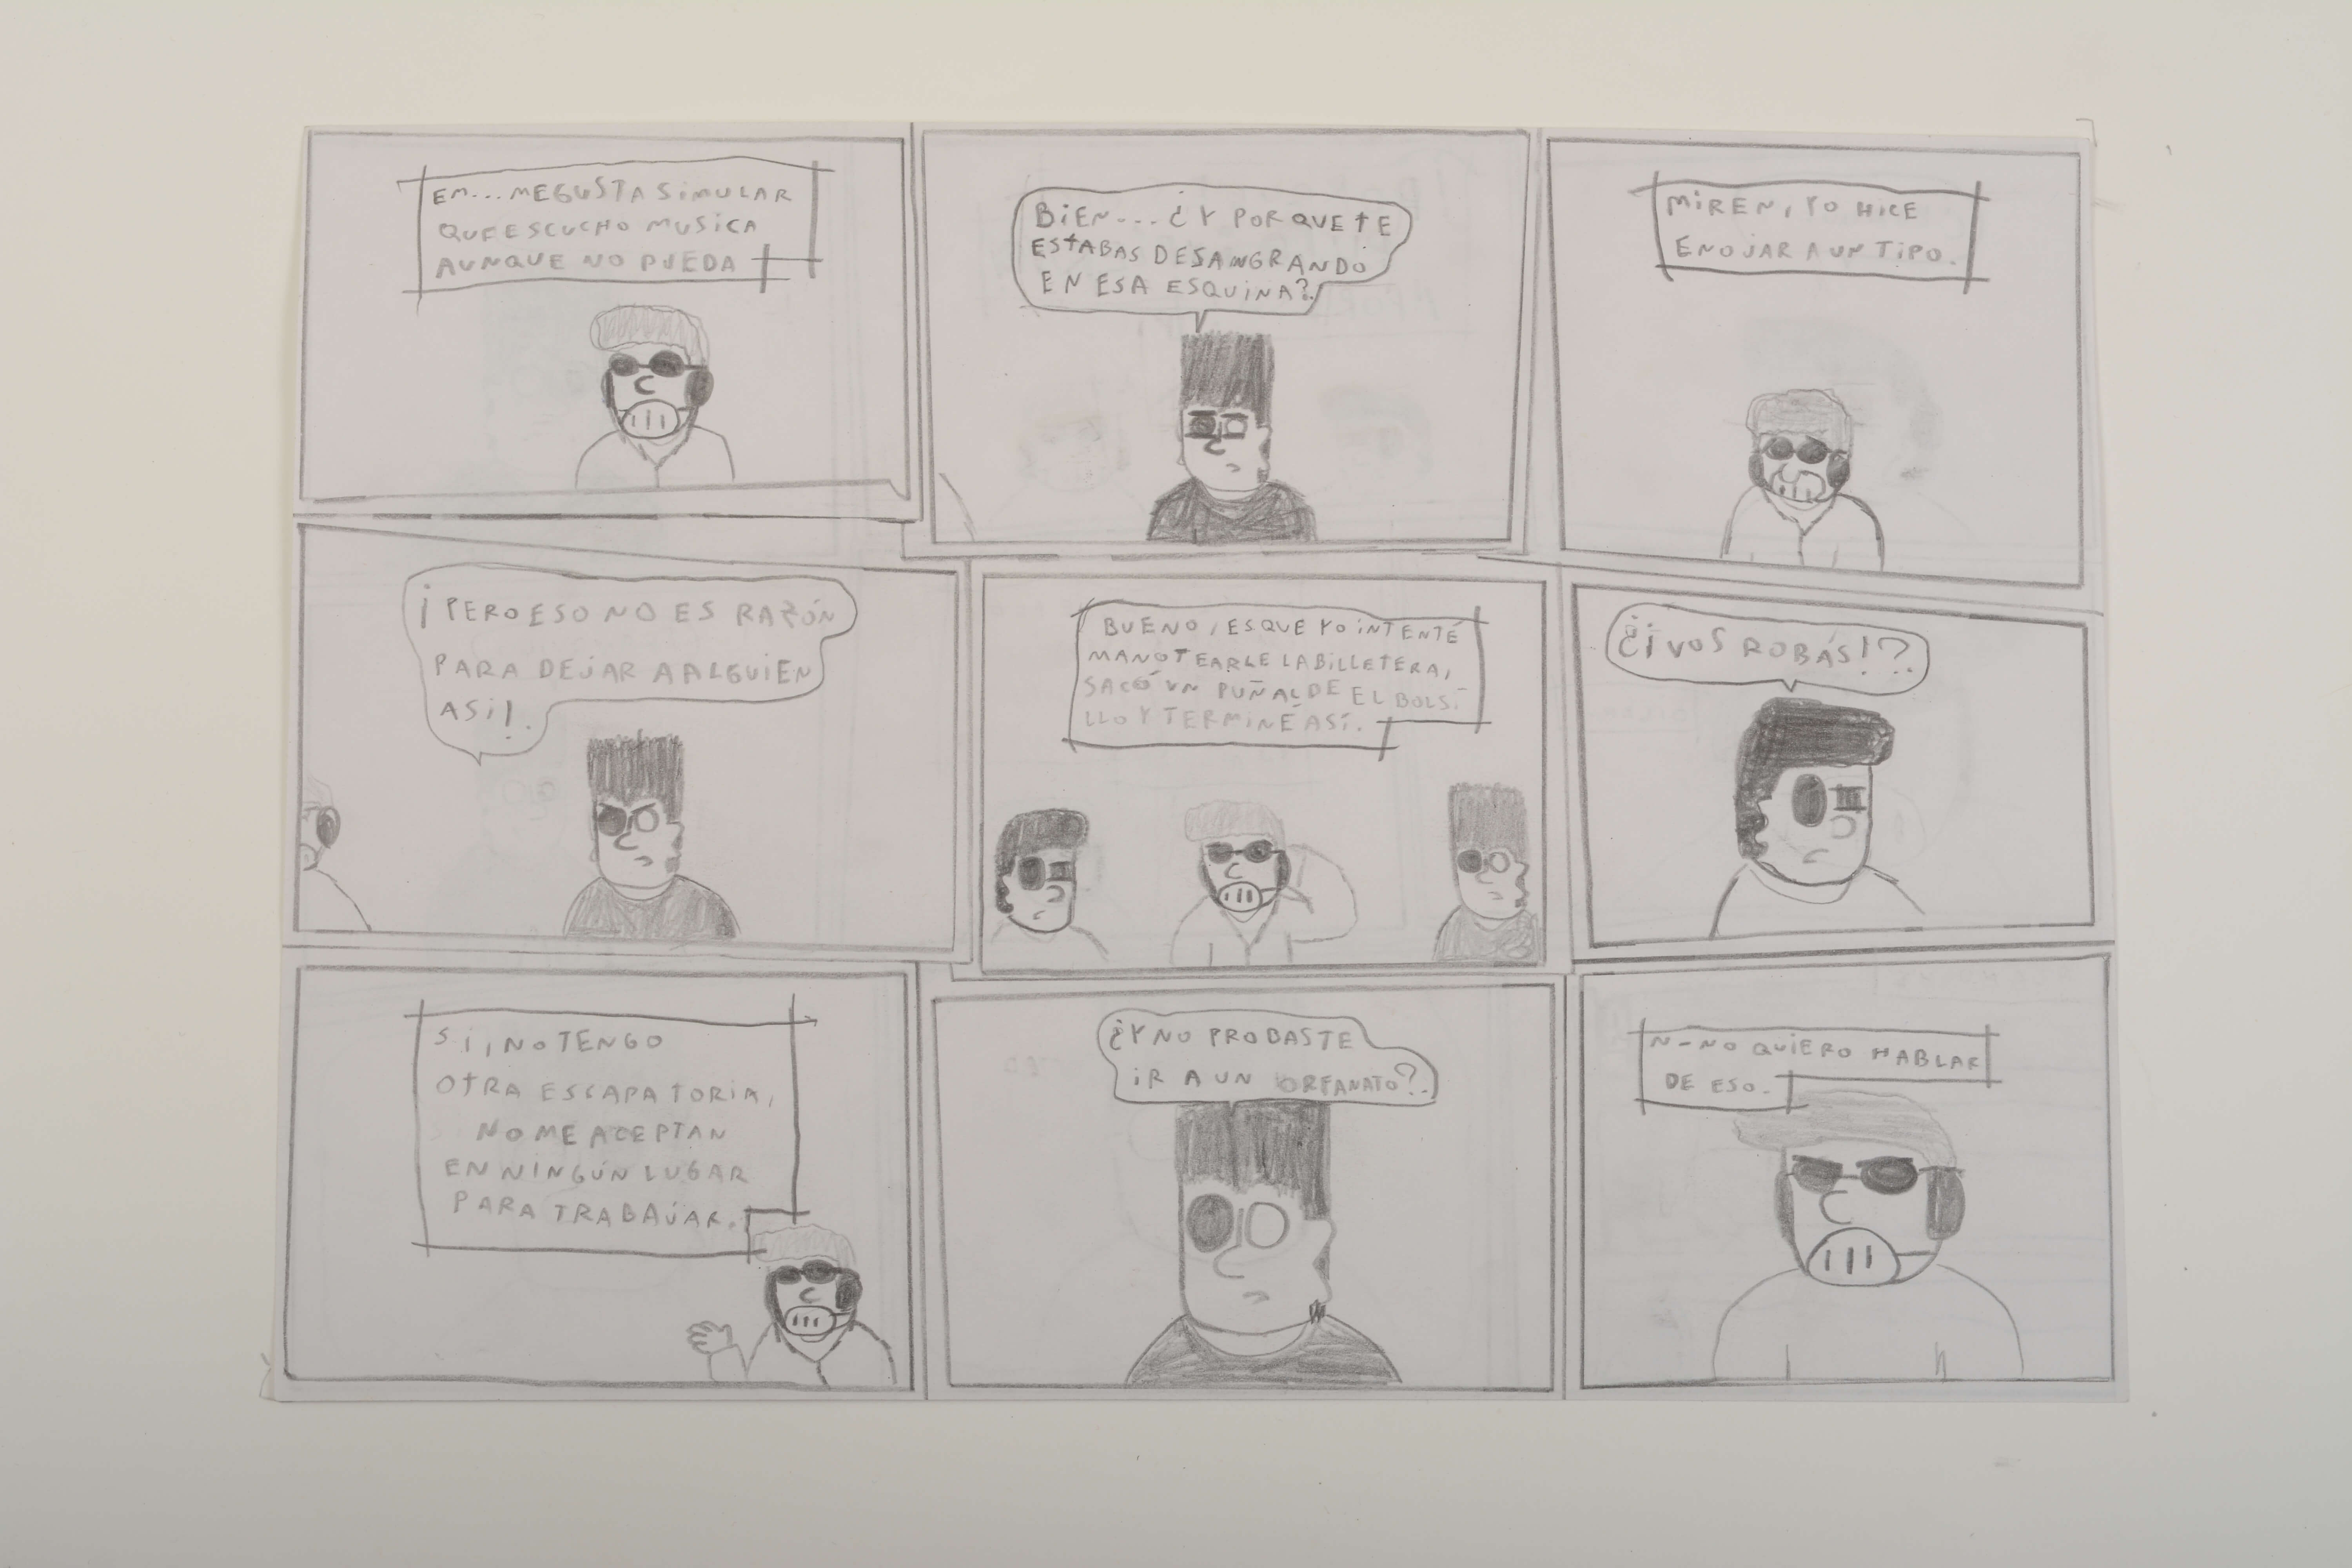 EM... ME GUSTA SIMULAR
QUE ESCUCHO MUSICA
AUNQUE NO PUEDA
BIEN... ¿Y POR QUE TE
ESTABAS DESANGRANDO
EN ESA ESQUINA?
MIREN, YO HICE
ENOJAR A UN TIPO.
¡PERO ESO NO ES RAZÓN
PARA DEJAR A ALGUIEN
ASI!
BUENO, ES QUE YO INTENTÉ
MANOTEARLE LA BILLETERA,
SACÓ UN PUÑAL DE EL BOLSI
LLO Y TERMINÉ ASÍ.
¿¡VOS ROBÁS!?
SI, NO TENGO
OTRA ESCAPATORIA,
NO ME ACEPTAN
EN NINGÚN LUGAR
PARA TRABAJAR.
¿Y NO PROBASTE
IR A UN ORFANATO?
N-NO QUIERO HABLAR
DE ESO.